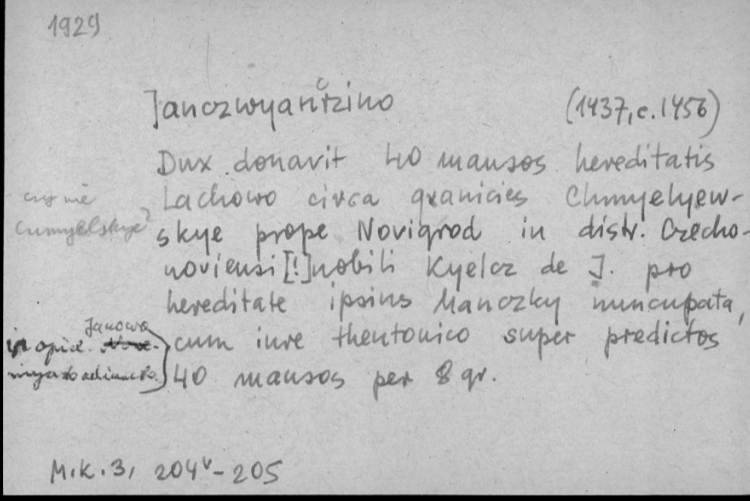 1929
Janczwyantzino (1437, c. 1456)
Dux donavit 40 mansos hereditatis
Lachowo circa granicies Chmyelyew-
skye prope Novigrod in distr. Czecho-
noviensi [!] nobili Kyelcz de J. pro
hereditate ipsius Manczky nuncupata,
cum iure theutonico super predictos
40 mansos per 8 gr.
czy nie
Cumyelskye?
Janowo
in opid.
M.K. 3, 204v-205